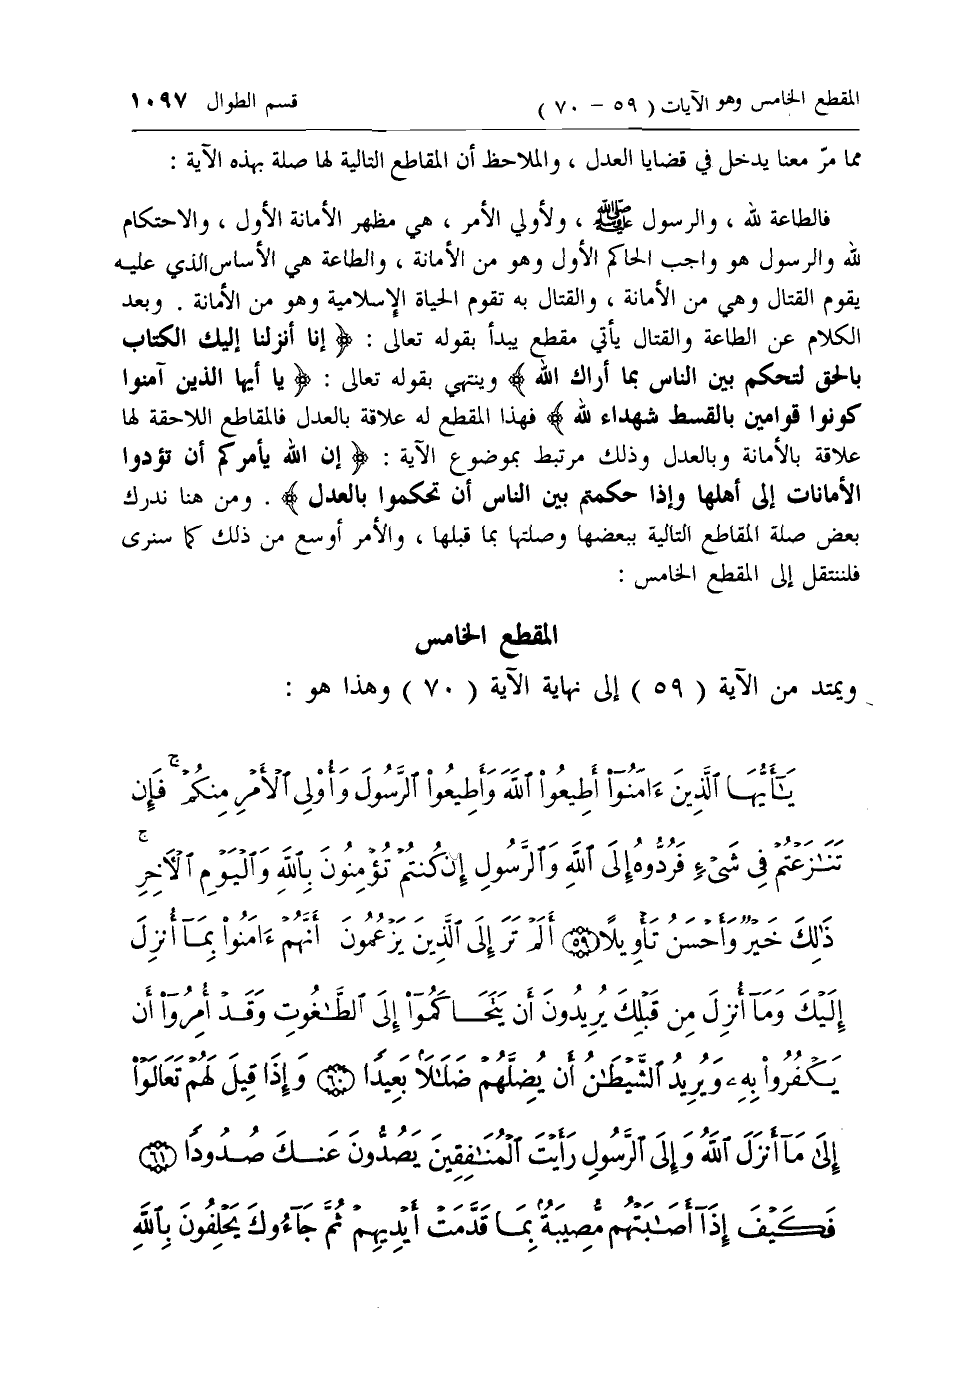 المقطع الخامس وهو الآيات ( ٥٩ – ٧٠ ) قسم الطوال ١٠٩٧
مما مرّ معنا يدخل في قضايا العدل ، والملاحظ أن المقاطع التالية لها صلة بهذه الآية :
فالطاعة لله ، والرسول ﷺ ، ولأولي الأمر ، هي مظهر الأمانة الأول ، والاحتكام
لله والرسول هو واجب الحاكم الأول وهو من الأمانة ، والطاعة هي الأساس الذي عليه
يقوم القتال وهي من الأمانة ، والقتال به تقوم الحياة الإسلامية وهو من الأمانة . وبعد
الكلام عن الطاعة والقتال يأتي مقطع يبدأ بقوله تعالى : ﴿ إنا أنزلنا إليك الكتاب
بالحق لتحكم بين الناس بما أراك الله ﴾ وينتهي بقوله تعالى : ﴿ يا أيها الذين آمنوا
كونوا قوامين بالقسط شهداء لله ﴾ فهذا المقطع له علاقة بالعدل فالمقاطع اللاحقة لها
علاقة بالأمانة وبالعدل وذلك مرتبط بموضوع الآية : ﴿ إن الله يأمركم أن تؤدوا
الأمانات إلى أهلها وإذا حكمتم بين الناس أن تحكموا بالعدل ﴾ . ومن هنا ندرك
بعض صلة المقاطع التالية ببعضها وصلتها بما قبلها ، والأمر أوسع من ذلك كما سنرى
فلننتقل إلى المقطع الخامس :
المقطع الخامس
ويمتد من الآية ( ٥٩ ) إلى نهاية الآية ( ٧٠ ) وهذا هو :
يَٰٓأَيُّهَا ٱلَّذِينَ ءَامَنُوٓا۟ أَطِيعُوا۟ ٱللَّهَ وَأَطِيعُوا۟ ٱلرَّسُولَ وَأُو۟لِى ٱلْأَمْرِ مِنكُمْ ۖ فَإِن
تَنَٰزَعْتُمْ فِى شَىْءٍ فَرُدُّوهُ إِلَى ٱللَّهِ وَٱلرَّسُولِ إِن كُنتُمْ تُؤْمِنُونَ بِٱللَّهِ وَٱلْيَوْمِ ٱلْءَاخِرِ ۚ
ذَٰلِكَ خَيْرٌ وَأَحْسَنُ تَأْوِيلًا ٥٩ أَلَمْ تَرَ إِلَى ٱلَّذِينَ يَزْعُمُونَ أَنَّهُمْ ءَامَنُوا۟ بِمَآ أُنزِلَ
إِلَيْكَ وَمَآ أُنزِلَ مِن قَبْلِكَ يُرِيدُونَ أَن يَتَحَاكَمُوٓا۟ إِلَى ٱلطَّٰغُوتِ وَقَدْ أُمِرُوٓا۟ أَن
يَكْفُرُوا۟ بِهِۦ وَيُرِيدُ ٱلشَّيْطَٰنُ أَن يُضِلَّهُمْ ضَلَٰلًۢا بَعِيدًا ٦٠ وَإِذَا قِيلَ لَهُمْ تَعَالَوْا۟
إِلَىٰ مَآ أَنزَلَ ٱللَّهُ وَإِلَى ٱلرَّسُولِ رَأَيْتَ ٱلْمُنَٰفِقِينَ يَصُدُّونَ عَنكَ صُدُودًا ٦١
فَكَيْفَ إِذَآ أَصَٰبَتْهُم مُّصِيبَةٌۢ بِمَا قَدَّمَتْ أَيْدِيهِمْ ثُمَّ جَآءُوكَ يَحْلِفُونَ بِٱللَّهِ